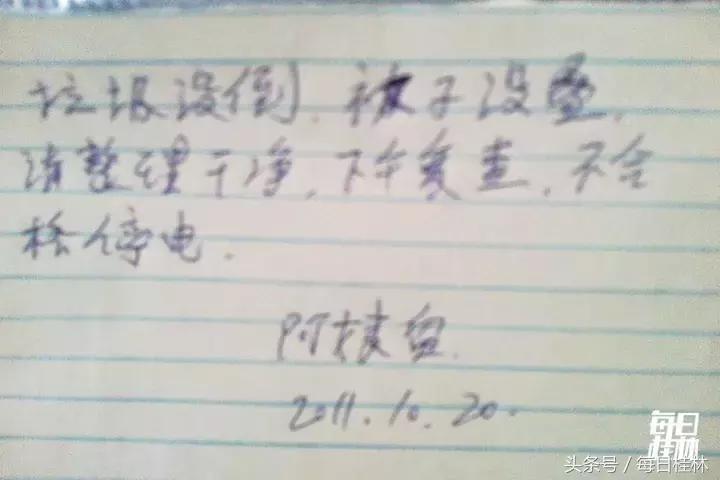 垃圾没倒，被子没叠，
请整理干净，下午复查，不合
格停电．
2011.10.20.
每日
桂林
头条号／每日桂林